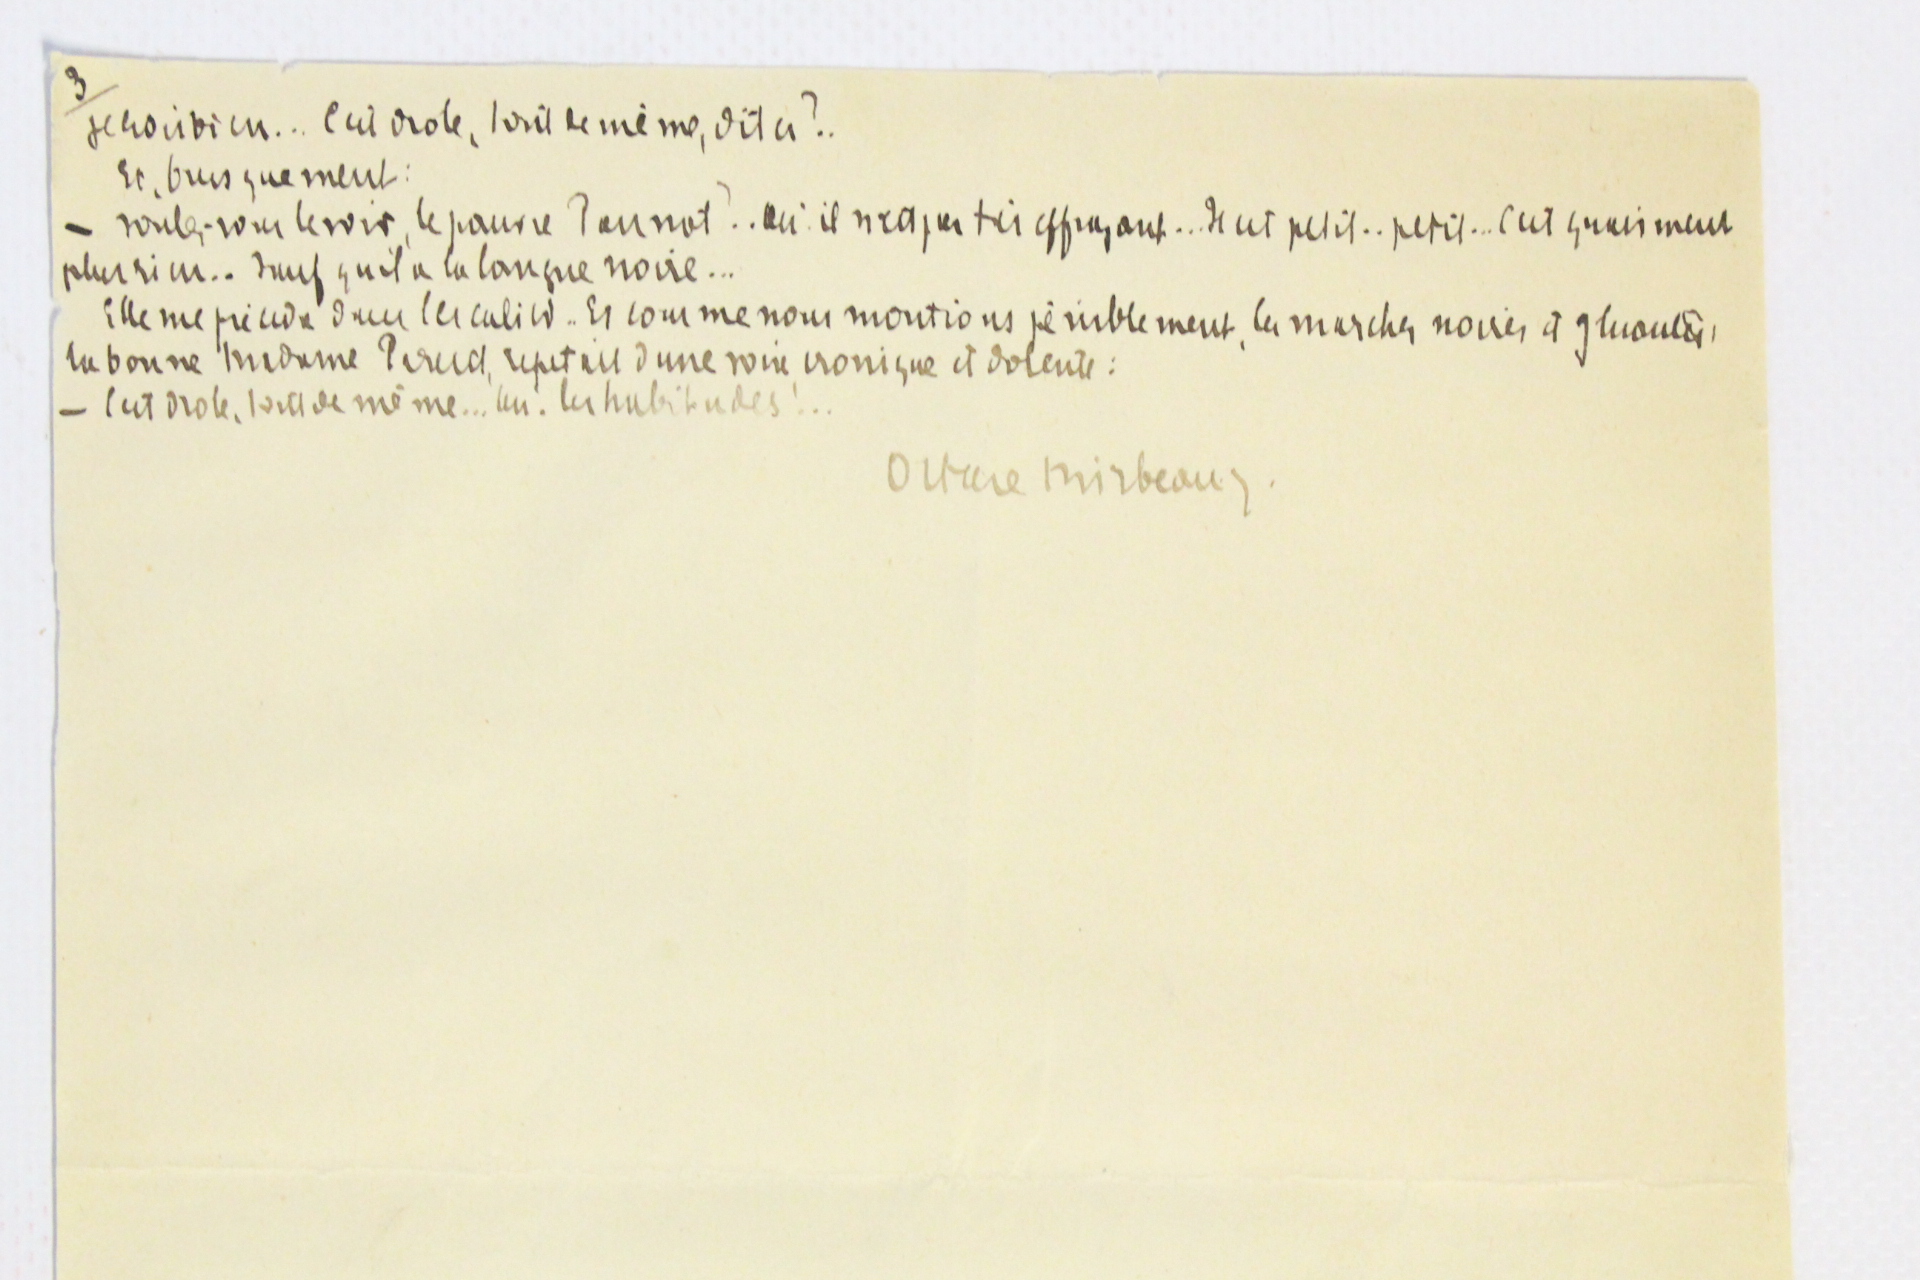 3
je crois bien... C'est drole, tout de même, dites ?..
Et, brusquement :
— voulez-vous le voir, le pauvre Pannot ?.. Oui il n'est pas très effrayant... Il est petit.. petit... C'est quasiment
plus rien.. Sauf qu'il a la langue noire...
Elle me précéda dans l'escalier.. Et comme nous montions péniblement, les marches noires et gluantes,
la bonne Madame répétait d'une voix ironique et dolente :
— C'est drole, tout de même... les habitudes !...
Octave Mirbeau.